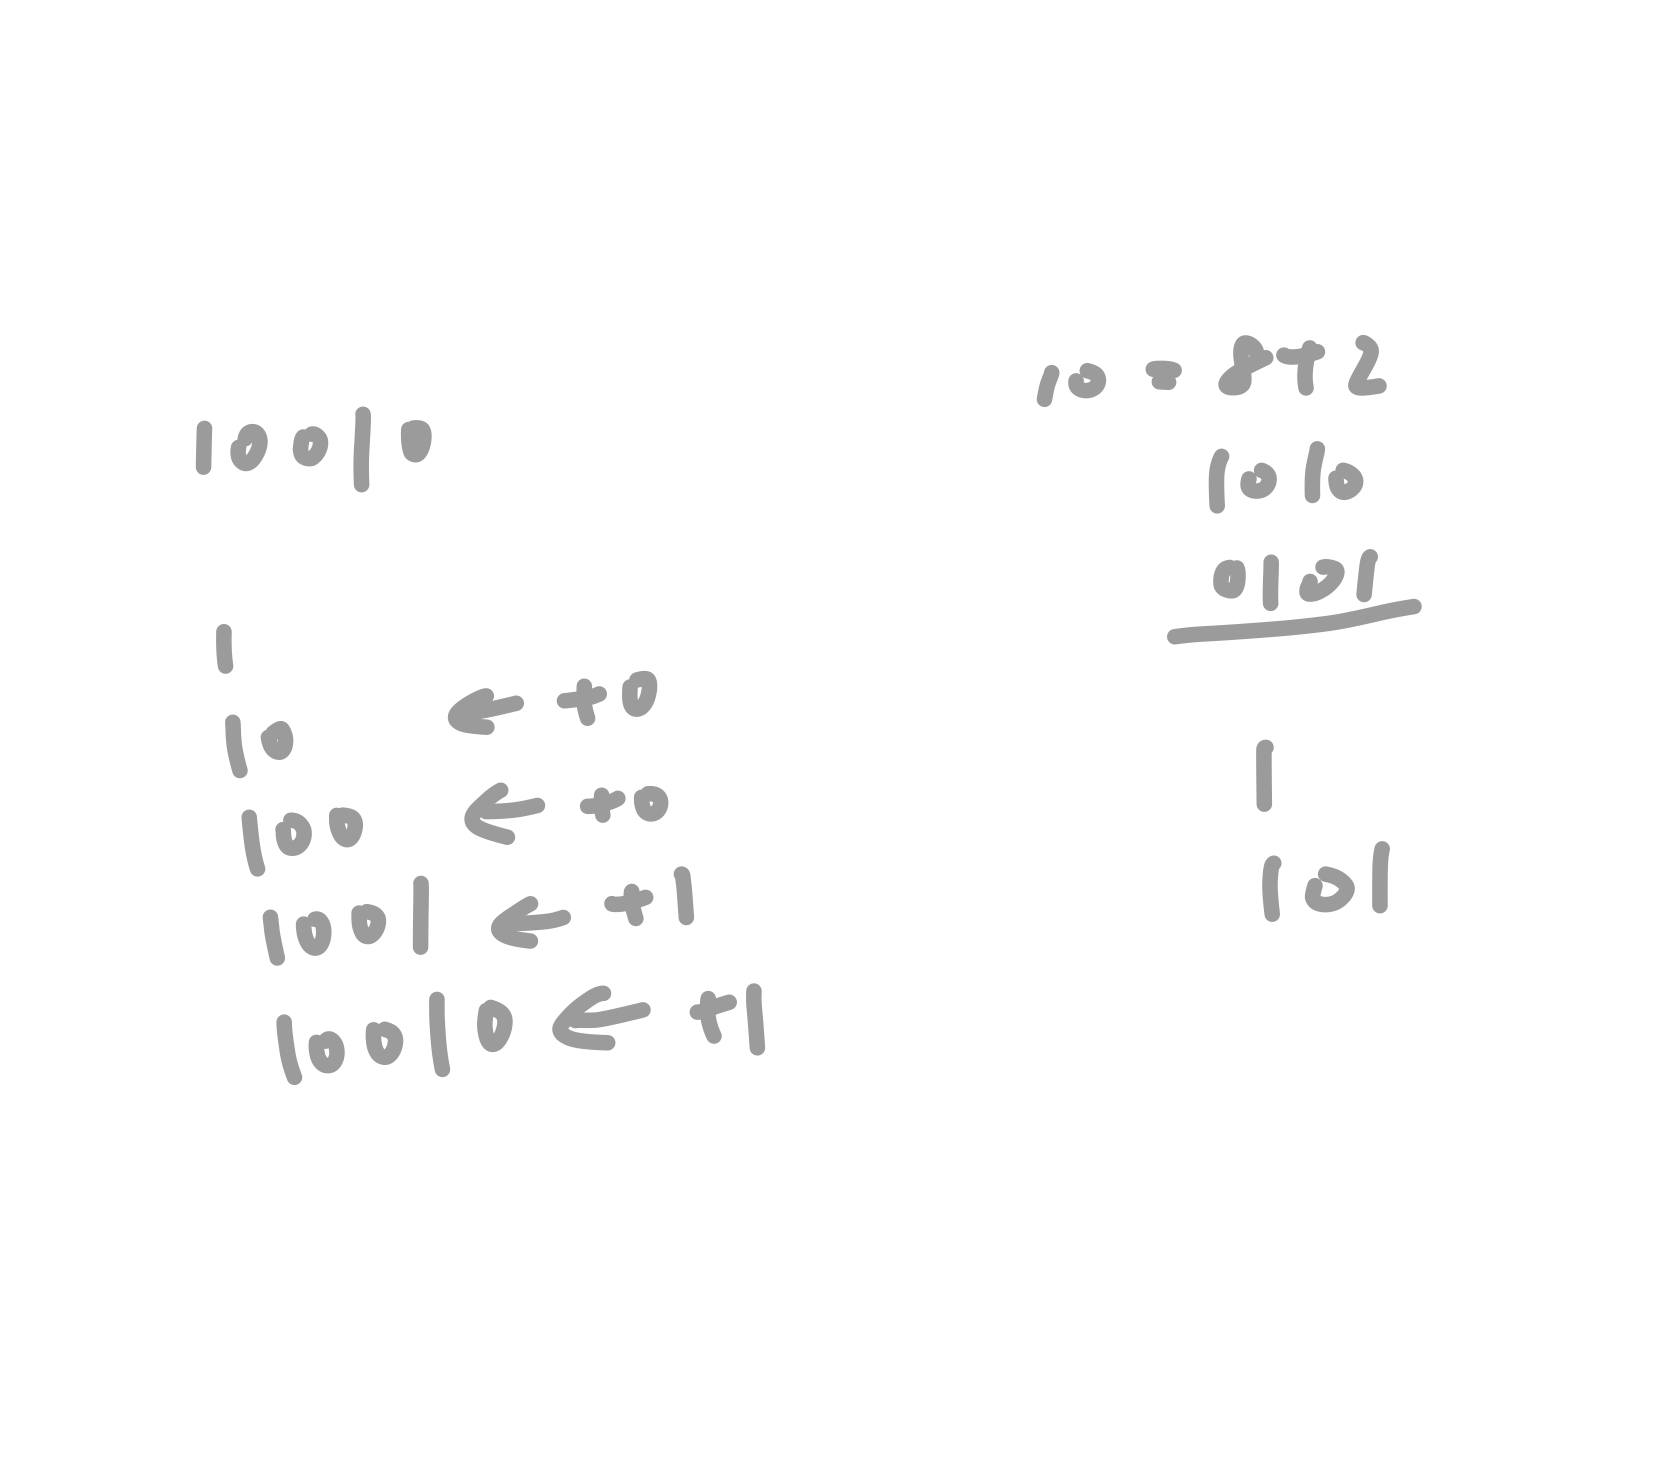 10010
1
10 ← +0
100 ← +0
1001 ← +1
10010 ← +1
10 = 8+2
1010
0101
1
101